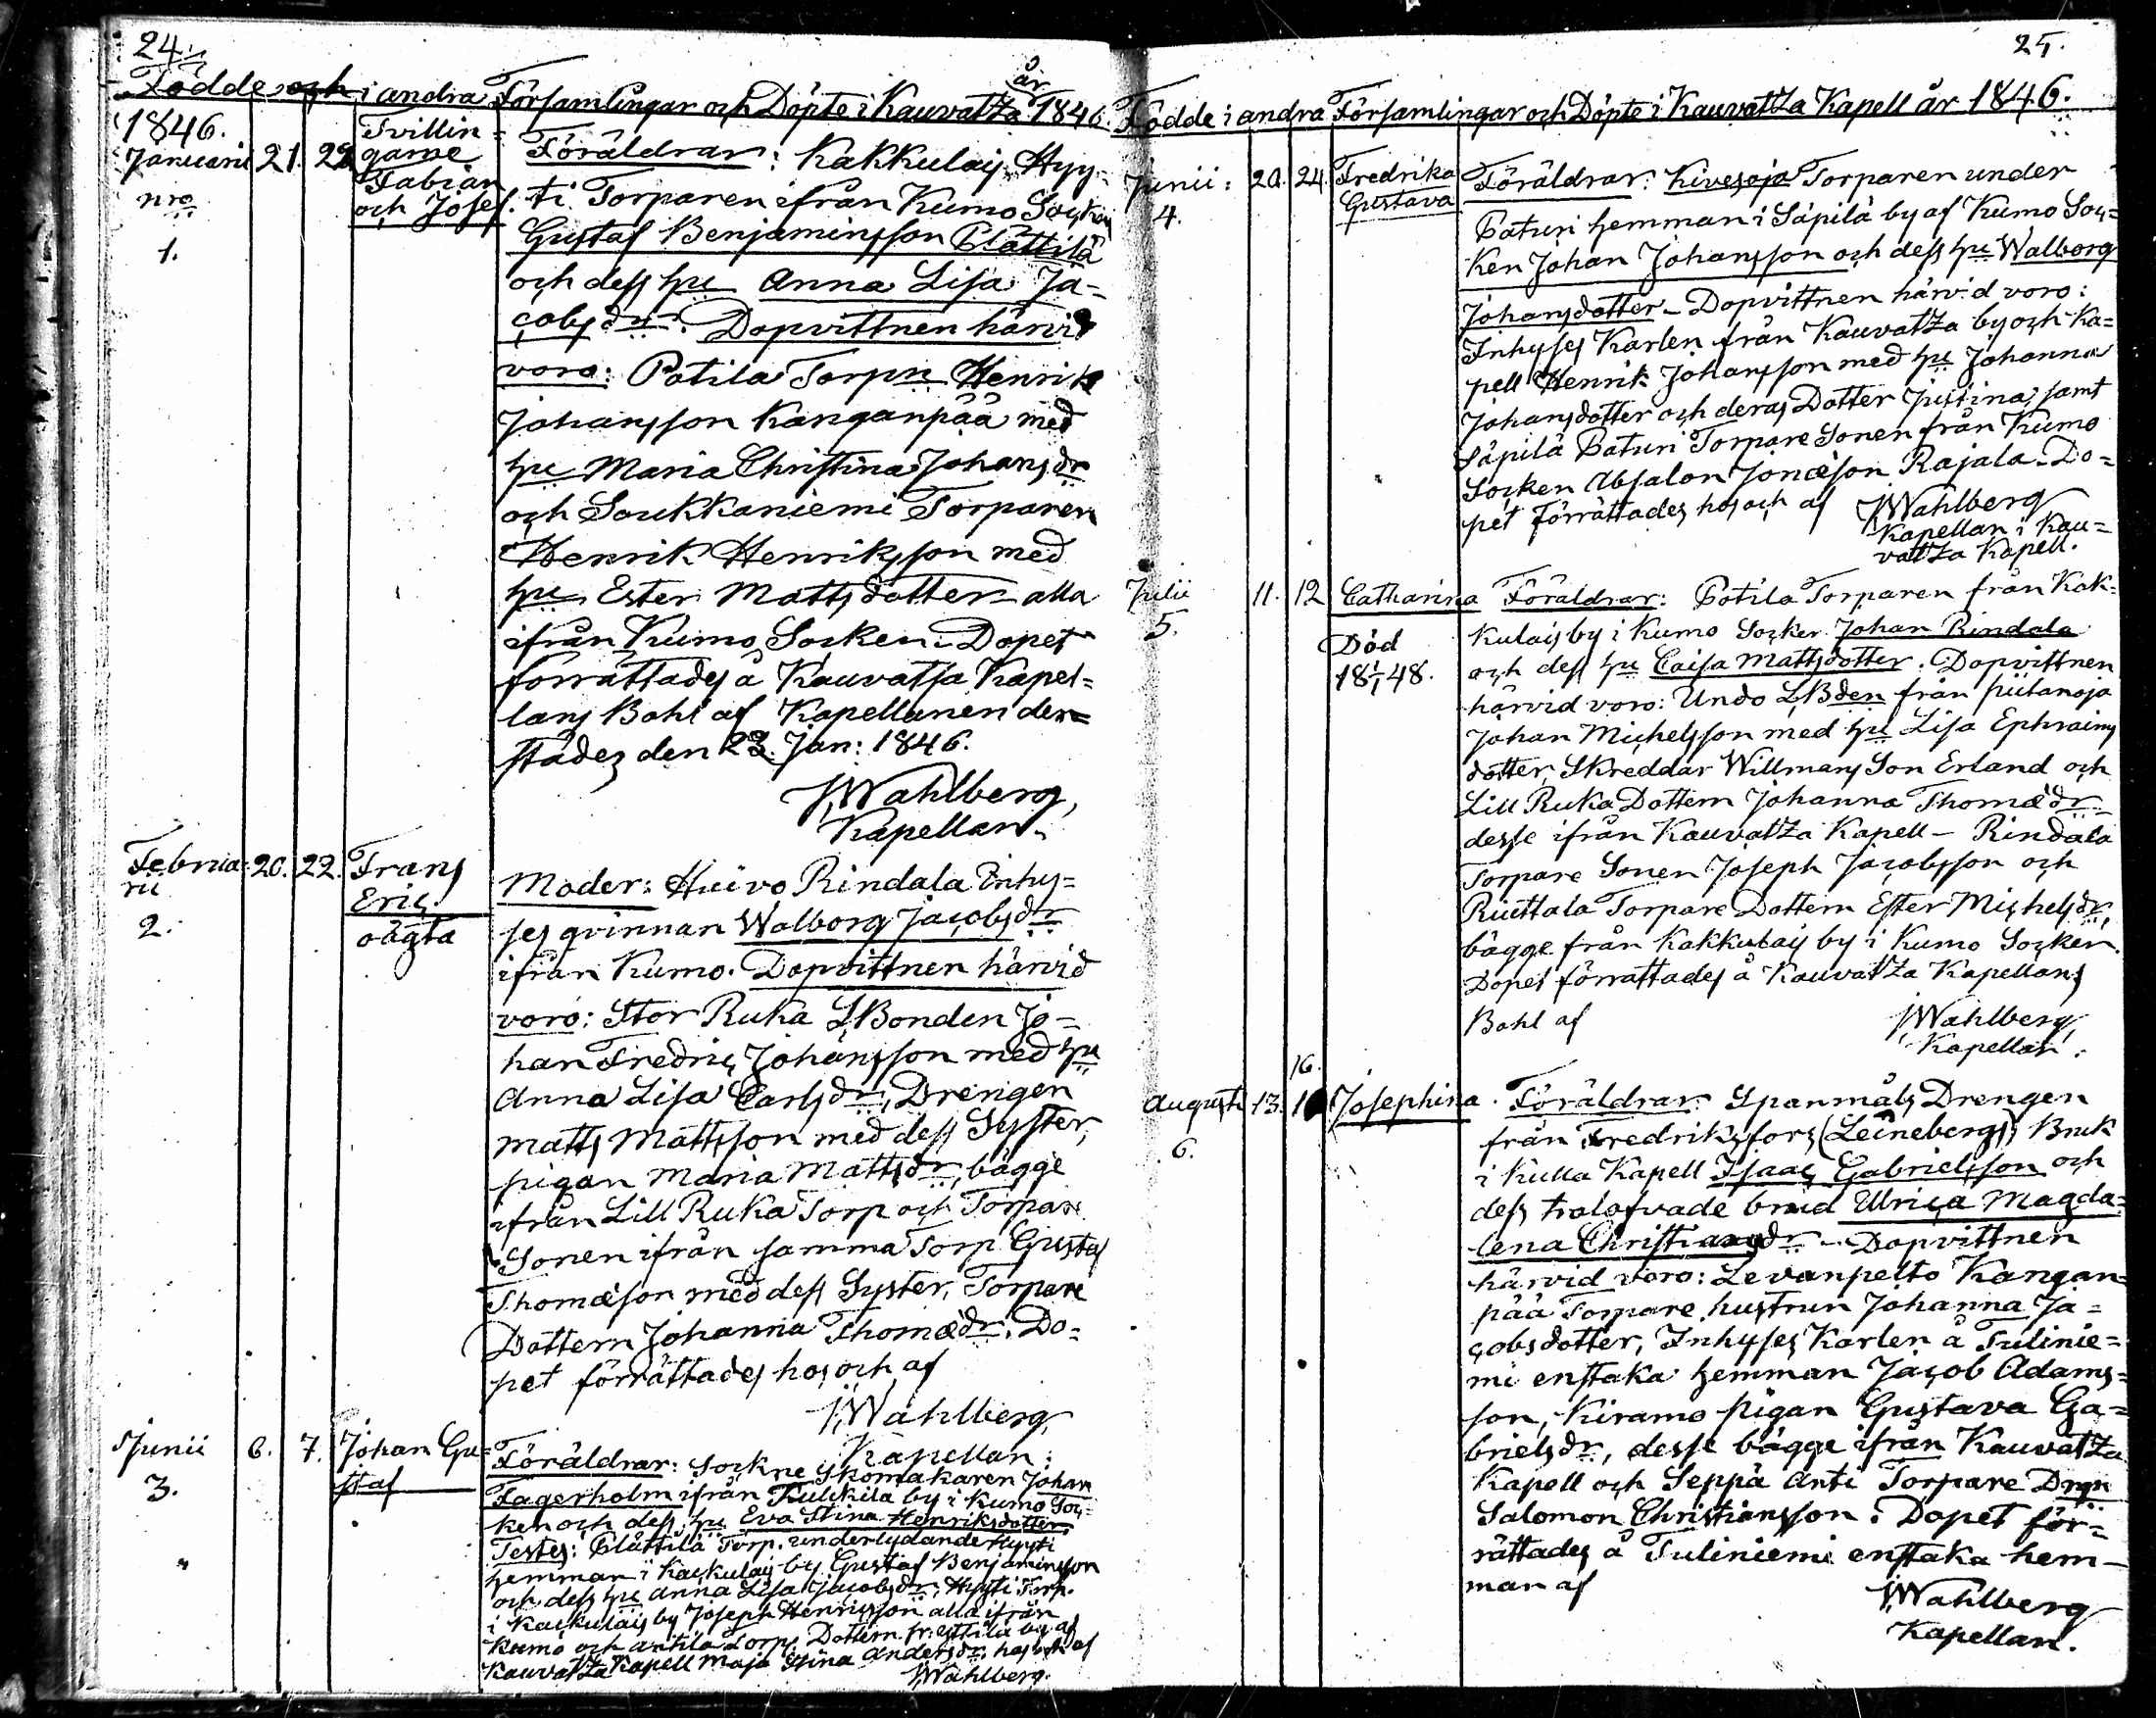 24.
Födde och i andra Församlingar och Döpte i Kauvatza år 1846.
1846.
Januarii 21. 22.
nro
1.
Tvillin=
garne
Fabian
och Josef.
Föräldrar: Kakkulais Hyy=
ti Torparen ifrån Kumo Socken
Gustaf Benjaminsson Plättilä
och dess hu Anna Lisa Ja=
cobsdr. Dopvittnen härvid
voro: Potila Torpn Henrik
Johansson Kanganpää med
hu Maria Christina Johansdr
och Soukkaniemi Torparen
Henrik Henriksson med
hu Ester Mattsdotter alla
ifrån Kumo Socken. Dopet
förrättades å Kauvatsa Kapel=
lans Bohl af Kapellanen der=
städes den 23. Jan: 1846.
JWahlberg,
Kapellan.
Februa= 20. 22.
rii
2.
Frans
Eric.
oägta
Moder: Huivo Rindala Inhy=
ses qvinnan Walborg Jacobsdr
ifrån Kumo. Dopvittnen härvid
voro: Stor Ruka LBonden Jo=
han Fredric Johansson med hu
Anna Lisa Carlsdr, Drengen
Matts Mattsson med dess Syster,
pigan Maria Mattsdr, bägge
ifrån Lill Ruka Torp och Torpare
Sonen ifrån samma Torp Gustaf
Thomæson med dess Syster, Torpare
Dottern Johanna Thomædr. Do=
pet förrättades hos och af
JWahlberg
Kapellan.
Junii 6. 7.
3.
Johan Gu=
staf
Föräldrar: Sockne Skomakaren Johan
Fagerholm ifrån Kulkila by i Kumo Soc=
ken och dess hu Eva Stina Henriksdotter,
Testes: Plättilä Torp. underlydande Hyyti
hemman i Kackulais by Gustaf Benjaminsson
och dess hu Anna Lisa Jacobsdr, Hyyti Torp.
i Kackulais by Joseph Henricsson alla ifrån
Kumo och Antila Torp. Dottern fr. Yttilä by af
Kauvatza Kapell Maja Stina Andersdr. hos och af
JWahlberg.
25.
Födde i andra Församlingar och Döpte i Kauvatza Kapell år 1846.
Junii: 20. 24.
4.
Fredrika
Gustava
Föräldrar: Kivesoja Torparen under
Paturi hemman i Säpilä by af Kumo Soc=
ken Johan Johansson och dess hu Walborg
Johansdotter - Dopvittnen härvid voro:
Inhyses Karlen från Kauvatza by och Ka=
pell Henrik Johansson med hu Johanna
Johansdotter och deras Dotter Justina, samt
Säpilä Paturi Torpare Sonen från Kumo
Socken Absalon Jonæson Rajala. Do=
pet förrättades hos och af JWahlberg
Kapellan i Kau=
vatza Kapell.
Julii 11. 12
5.
Catharina
Död
18 1/1 48.
Föräldrar: Potila Torparen från Kak=
kulais by i Kumo Socken Johan Rindala
och dess hu Caisa Mattsdotter. Dopvittnen
härvid voro: Undo LBden från piilanoja
Johan Michelsson med hu Lisa Ephraims
dotter, Skreddar Willmans Son Erland och
Lill Ruka Dottern Johanna Thomædr
desse ifrån Kauvatza Kapell - Rindala
Torpare Sonen Joseph Jacobsson och
Riiettala Torpare Dottern Ester Michelsdr,
bägge från Kakkulais by i Kumo Socken.
Dopet förrättades å Kauvatza Kapellans
Bohl af JWahlberg,
Kapellan.
16.
Augusti 13.
6.
Josephina.
Föräldrar: Spanmåls Drengen
från Fredriksfors (Leineberg), Bruk
i Kulla Kapell Isaac Gabrielsson och
dess trolofvade brud Ulrica Magda=
lena Christiansdr - Dopvittnen
härvid voro: Levanpelto Kangan=
pää Torpare hustrun Johanna Ja=
cobsdotter, Inhyses Karlen å Tulinie=
mi enstaka hemman Jacob Adams=
son, Kiramo pigan Gustava Ga=
brielsdr, desse bägge ifrån Kauvatza
Kapell och Seppä Anti Torpare Drgn
Salomon Christiansson. Dopet för=
rättades å Tuliniemi enstaka hem=
man af
JWahlberg
Kapellan.